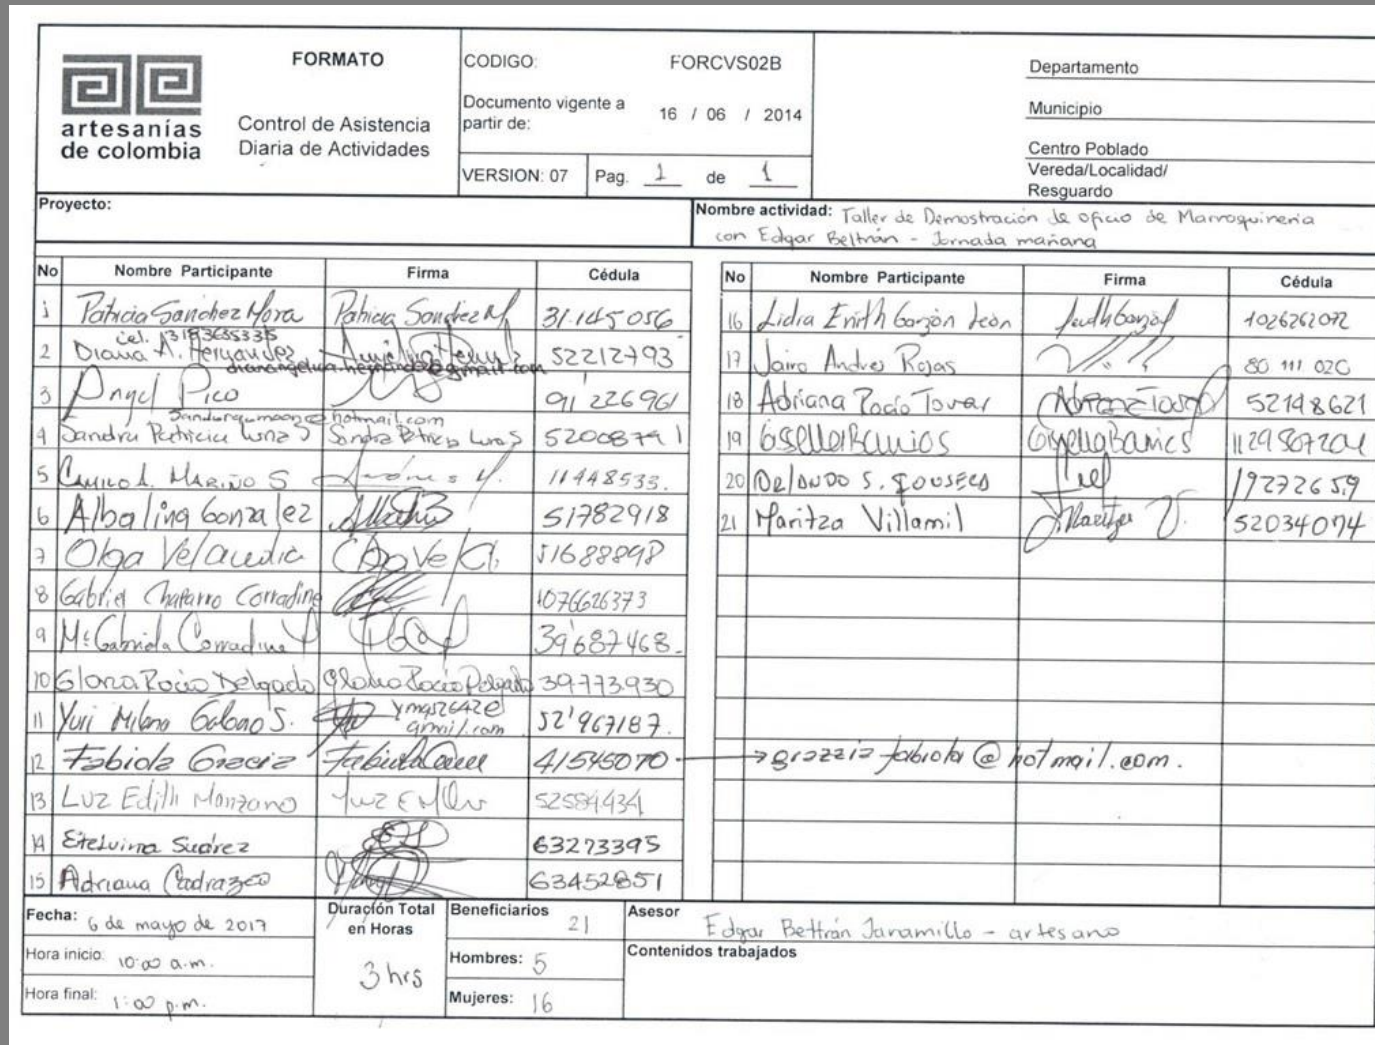 artesanías
de colombia
FORMATO
Control de Asistencia
Diaria de Actividades
CODIGO: FORCVS02B
Documento vigente a
partir de: 16 / 06 / 2014
VERSION: 07 Pag. 1 de 1
Departamento
Municipio
Centro Poblado
Vereda/Localidad/
Resguardo
Proyecto:
Nombre actividad: Taller de Demostración de oficio de Marroquineria
con Edgar Beltrán - Jornada mañana
No Nombre Participante Firma Cédula
1 Patricia Sanchez Mora Patricia Sanchez M. 31.145056
cel. 3183655335
2 Diana A. Hernandez 52212793
3 Angel Pico 91'226961
hotmail.com
4 Sandra Patricia Luna S Sandra Patricia Luna S 52008791
5 Camilo A. Mariño S 11448533.
6 Albalina Gonzalez 51782918
7 Olga Velaudia 51688898
8 Gabriel Chaparro Corradine 1076626373
9 Ma Gabriela Corradine 39'687468.
10 Gloria Rocio Delgado Gloria Rocio Delgado 39.773.930
11 Yuri Milena Galeano S. gmail.com 52'967187.
12 Fabiola Gracia 41545070 → grazzia fabiola @ hotmail.com.
13 Luz Edith Manzano 52584434
14 Etelvina Suárez 63273395
15 Adriana 63452851
No Nombre Participante Firma Cédula
16 Lidia Garzón León 1026262072
17 Jairo Andres Rojas 80 111 020
18 Adriana Rocio Tovar 52148621
19 Gissella Barrios Gissella Barrios 1129507204
20 Orlando S. Fonseca 19272659
21 Maritza Villamil Maritza V. 52034074
Fecha: 6 de mayo de 2017
Hora inicio: 10:00 a.m.
Hora final: 1:00 p.m.
Duración Total
en Horas
3 hrs
Beneficiarios 21
Hombres: 5
Mujeres: 16
Asesor Edgar Beltrán Jaramillo - artesano
Contenidos trabajados